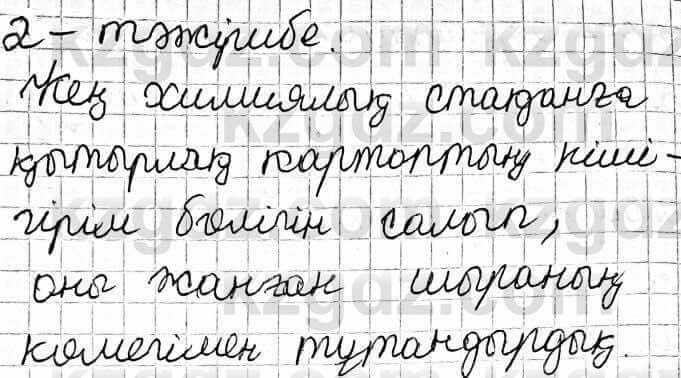 2 - тәжірибе.
Кең химиялық стақанға
қытырлақ картоптың кіші-
гірім бөлігін салып,
оны жанған шыраның
көмегімен тұтандырдық.